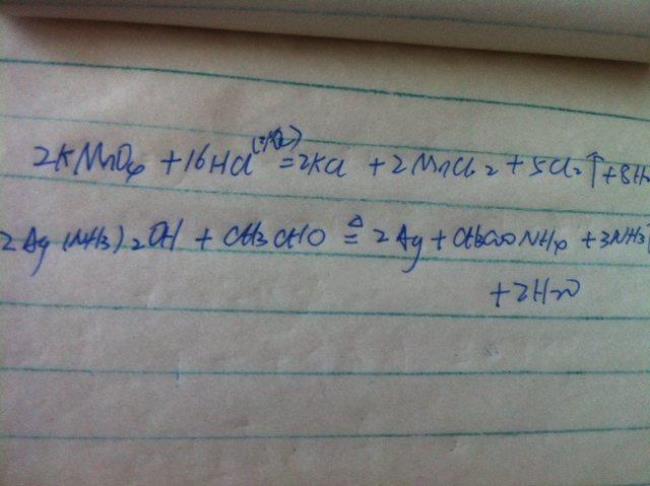 2KMnO₄ + 16HCl(浓) = 2KCl + 2MnCl₂ + 5Cl₂↑ + 8H₂
2Ag(NH₃)₂OH + CH₃CHO ≜ 2Ag + CH₃COONH₄ + 3NH₃↑
+ 2H₂O